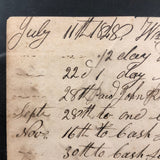 July 11th 1828 Wa
" 12 day
" 22d 1 day
" 28th Paid John R
Sept 28th to one
Nov. 16th to Cash
30th to Cash